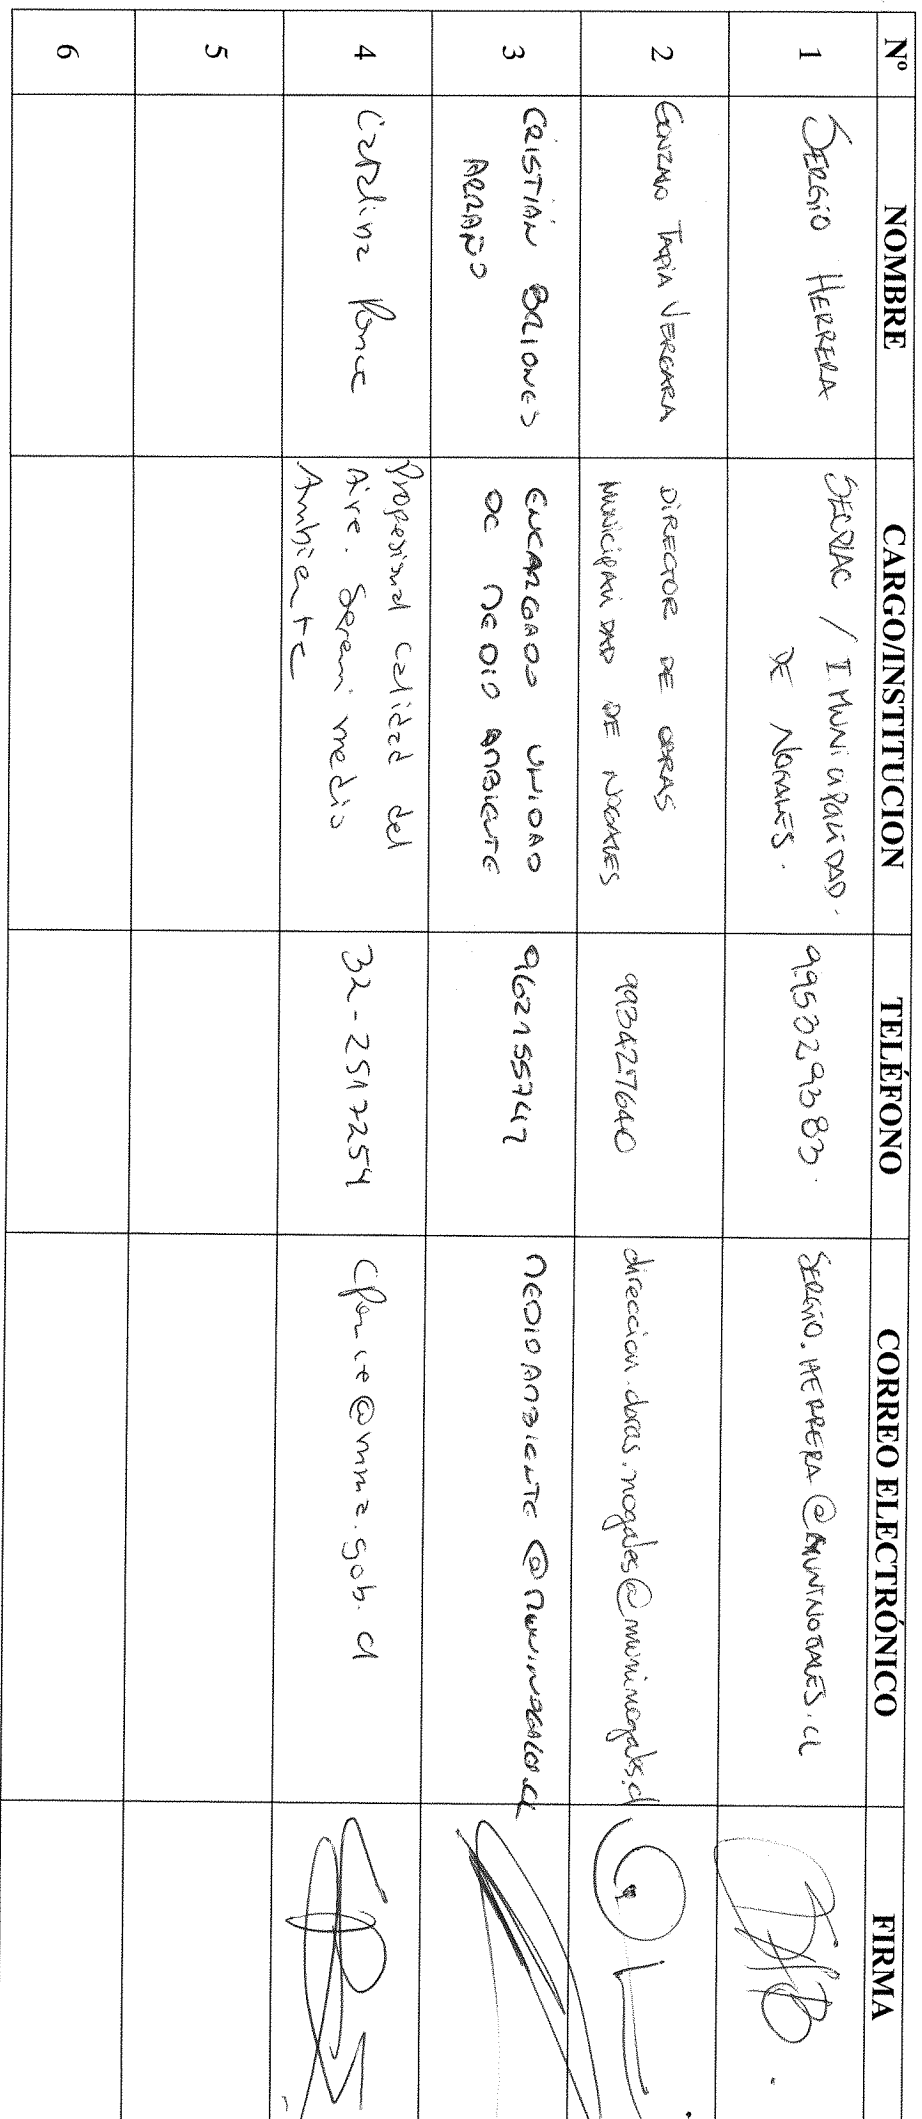 Nº NOMBRE CARGO/INSTITUCION TELÉFONO CORREO ELECTRÓNICO FIRMA
1 SERGIO HERRERA SECPLAC / I MUNICIPALIDAD. DE NOGALES. 995029383. SERGIO.HERRERA@MUNINOGALES.CL
2 GONZALO TAPIA VERGARA DIRECTOR DE OBRAS MUNICIPALIDAD DE NOGALES 993427640 direccion.obras.nogales@muninogales.cl
3 CRISTIÁN BRIONES ARRAÑO ENCARGADO UNIDAD DE MEDIO AMBIENTE 962155747 MEDIOAMBIENTE@MUNINOGALES.CL
4 Catalina Ponce Profesional Calidad del Aire. Seremi medio Ambiente 32-2517254 CPonce@mma.gob.cl
5
6